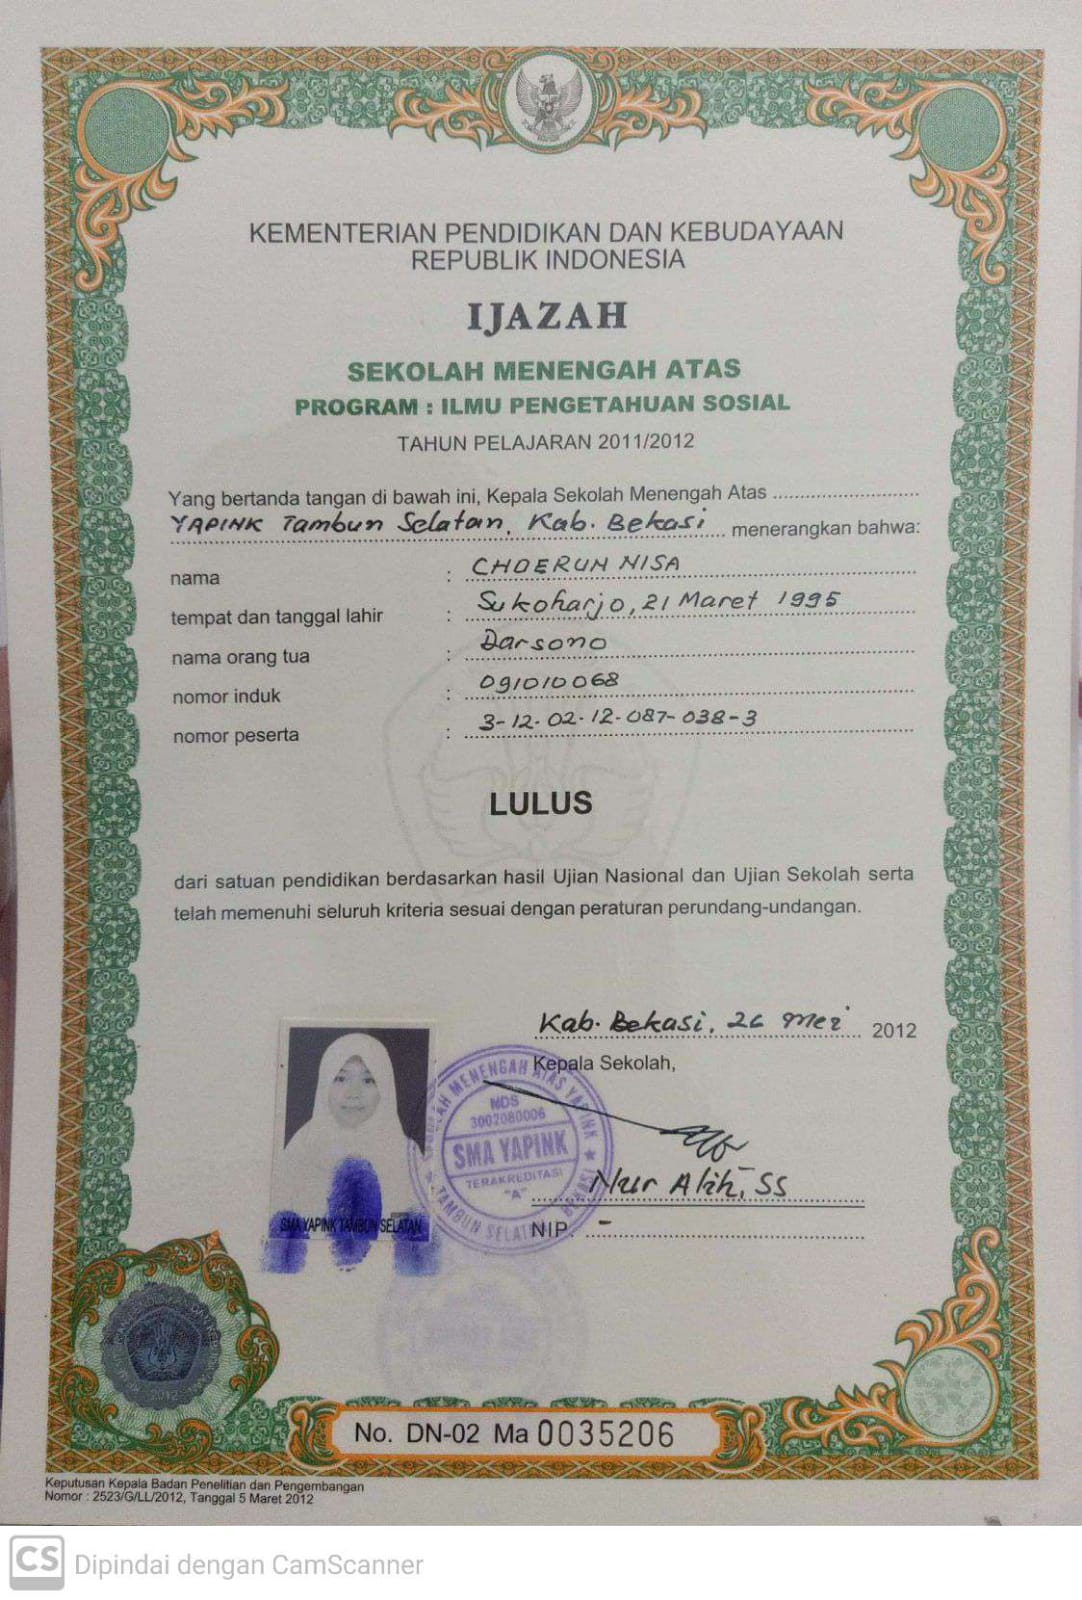 KEMENTERIAN PENDIDIKAN DAN KEBUDAYAAN
REPUBLIK INDONESIA
IJAZAH
SEKOLAH MENENGAH ATAS
PROGRAM : ILMU PENGETAHUAN SOSIAL
TAHUN PELAJARAN 2011/2012
Yang bertanda tangan di bawah ini, Kepala Sekolah Menengah Atas
YAPINK Tambun Selatan, Kab. Bekasi menerangkan bahwa:
nama : CHOERUN NISA
tempat dan tanggal lahir : Sukoharjo, 21 Maret 1995
nama orang tua : Darsono
nomor induk : 091010068
nomor peserta : 3-12-02-12-087-038-3
LULUS
dari satuan pendidikan berdasarkan hasil Ujian Nasional dan Ujian Sekolah serta
telah memenuhi seluruh kriteria sesuai dengan peraturan perundang-undangan.
Kab. Bekasi, 26 Mei 2012
Kepala Sekolah,
SEKOLAH MENENGAH ATAS YAPINK
NDS
3002080006
SMA YAPINK
TERAKREDITASI
"A"
TAMBUN SELATAN BEKASI
Nur Alih, SS
SMA YAPINK TAMBUN SELATAN
NIP. -
2012
No. DN-02 Ma 0035206
Keputusan Kepala Badan Penelitian dan Pengembangan
Nomor : 2523/G/LL/2012, Tanggal 5 Maret 2012
CS Dipindai dengan CamScanner